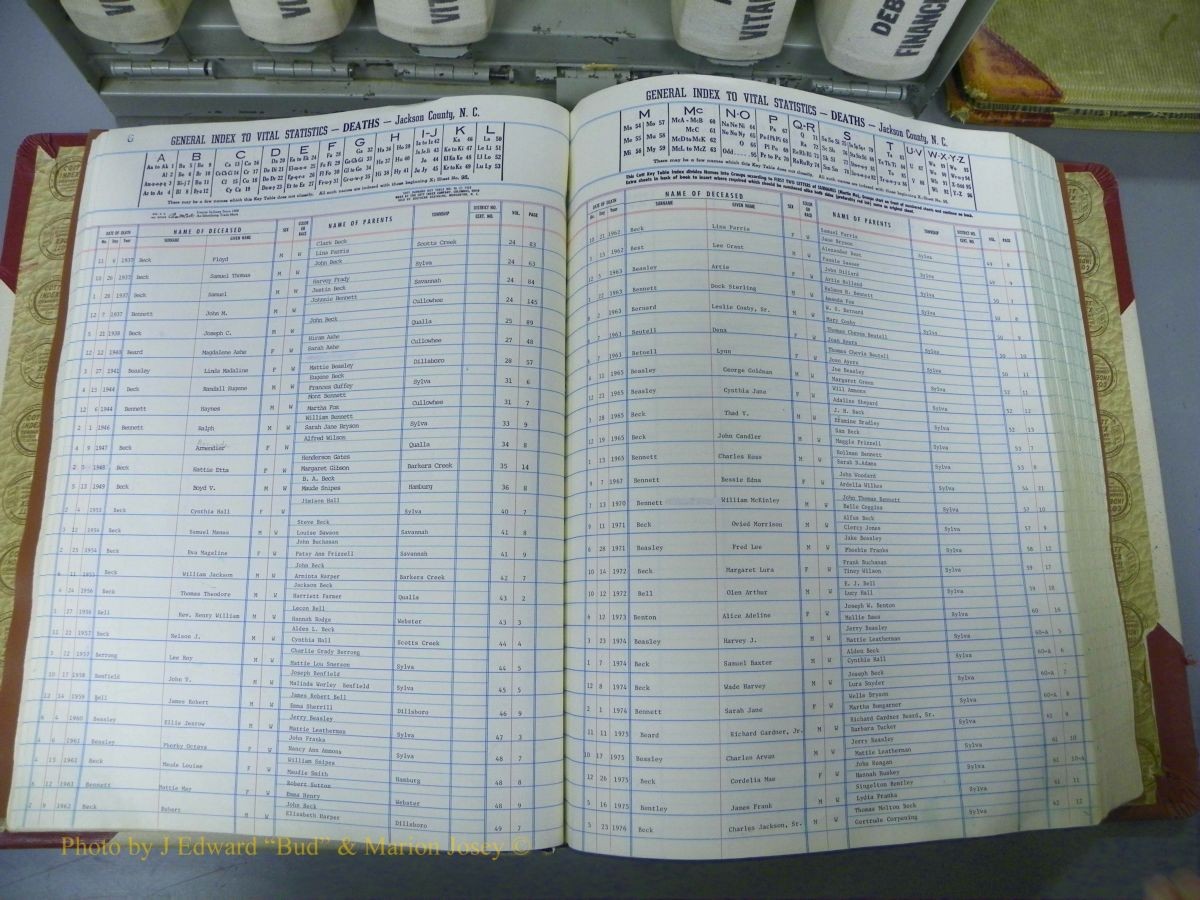 VITAL
DEB
FINANCE
6
GENERAL INDEX TO VITAL STATISTICS — DEATHS — Jackson County, N. C.
A B C D E F G H I-J K L
NAME OF DECEASED
SURNAME GIVEN NAME
SEX
COLOR OR RACE
NAME OF PARENTS
TOWNSHIP
DISTRICT NO.
CERT. NO.
VOL. PAGE
Clark Beck Scotts Creek 24 83
11 6 1937 Beck Floyd M W Lina Parris
John Beck Sylva 24 63
10 26 1937 Beck Samuel Thomas M W
Harvey Frady Savannah 24 84
1 28 1937 Beck Samuel M W Jestin Beck
Johnnie Bennett Cullowhee 24 145
12 7 1937 Bennett John M. M W
John Beck Qualla 25 89
5 21 1938 Beck Joseph C. M W
Hiram Ashe Cullowhee 27 48
12 12 1940 Beard Magdalene Ashe F W Sarah Ashe
Mattie Beasley Dillsboro 28 57
3 27 1941 Beasley Linda Madaline F W
Eugene Beck Sylva 31 6
4 15 1944 Beck Randall Eugene M W Frances Guffey
Mont Bennett Cullowhee 31 7
12 6 1944 Bennett Haynes M W Martha Fox
William Bennett Sylva 33 9
2 1 1946 Bennett Ralph M W Sarah Jane Bryson
Alfred Wilson Qualla 34 8
4 9 1947 Beck Armendier F W
Henderson Gates Barkers Creek 35 14
2 5 1948 Beck Hattie Etta F W Margaret Gibson
B. A. Beck Hamburg 36 8
5 13 1949 Beck Boyd V. M W Maude Snipes
Jimison Hall Sylva 40 7
2 4 1953 Beck Cynthia Hall F W
Steve Beck Savannah 41 8
3 12 1954 Beck Samuel Manas M W Louise Dawson
John Buchanan Savannah 41 9
2 25 1954 Beck Eva Magaline F W Patsy Ann Frizzell
John Beck Barkers Creek 42 7
6 11 1955 Beck William Jackson M W Arminta Harper
Jackson Beck Qualla 43 2
4 24 1956 Beck Thomas Theodore M W Harriett Farmer
Lecon Bell Webster 43 3
5 27 1956 Bell Rev. Henry William M W Hannah Hodge
Alden L. Beck Scotts Creek 44 4
11 22 1957 Beck Nelson J. M W Cynthia Hall
Charlie Grady Berrong Sylva 44 5
3 22 1957 Berrong Lee Roy M W Mattie Lou Snerson
Joseph Benfield Sylva 45 5
10 17 1958 Benfield John V. M W Malinda Worley Benfield
James Robert Bell Dillsboro 46 9
12 14 1959 Bell James Robert M W Emma Sherrill
Jerry Beasley Sylva 47 3
6 4 1960 Beasley Ellis Jearow M W Mattie Leatherman
John Franks Sylva 48 7
4 6 1961 Beasley Phorky Octava F W Nancy Ann Ammons
William Snipes Hamburg 48 8
4 15 1961 Beck Maude Louise F W Maudie Smith
Robert Sutton Webster 48 9
6 12 1961 Bennett Mattie May F W Emma Henry
John Beck Dillsboro 49 7
2 9 1962 Beck Robert M W Elizabeth Harper
GENERAL INDEX TO VITAL STATISTICS — DEATHS — Jackson County, N. C.
M Mc N-O P Q-R S T U-V W-X-Y-Z
NAME OF DECEASED
SURNAME GIVEN NAME
NAME OF PARENTS
10 21 1962 Beck Lina Parris F W Samuel Parris Sylva 49 8
Jane Bryson
3 15 1962 Best Lee Grant M W Alexander Best Sylva 49 9
12 3 1963 Beasley Artie F W John Dillard Sylva 50 7
Artie Holland
1 22 1963 Bennett Dock Sterling M W Sylva 50 8
Amanda Fox
9 2 1963 Bernard Leslie Cosby, Sr. M W W. O. Bernard Sylva 50 9
Mary Cosby
6 7 1963 Beutell Dena F W Thomas Chevis Beutell Sylva 50 10
Joan Ayers
6 7 1963 Beutell Lynn F W Thomas Chevis Beutell Sylva 50 11
Joan Ayers
4 11 1965 Beasley George Coldman M W Joe Beasley Sylva 52 11
Margaret Green
12 21 1965 Beasley Cynthia Jane F W Will Ammons Sylva 52 12
Adaline Shepard
3 28 1965 Beck Thad Y. M W J. H. Beck Sylva 52 13
Effamine Bradley
12 19 1965 Beck John Candler M W Sam Beck Sylva 53 7
Maggie Frizzell
1 15 1965 Bennett Charles Ross M W Rollman Bennett Sylva 53 8
Sarah B. Adams
9 7 1967 Bennett Bessie Edna F W John Woodard Sylva 54 21
Ardella Wilkes
1 13 1970 Bennett William McKinley M W John Thomas Bennett Sylva 57 10
Belle Coggins
9 11 1971 Beck Ovied Morrison M W Alfus Beck Sylva 57 9
Clercy Jones
6 28 1971 Beasley Fred Lee M W Jake Beasley Sylva 58 12
Phoebie Franks
10 14 1972 Beck Margaret Lura F W Frank Buchanan Sylva 59 17
Tincy Wilson
10 12 1972 Bell Olen Arthur M W E. J. Bell Sylva 59 18
Lucy Hall
4 12 1973 Benton Alice Adeline F W Joseph W. Benton Sylva 60 16
3 23 1974 Beasley Harvey J. M W Jerry Beasley Sylva 60-A 5
Mattie Leatherman
1 7 1974 Beck Samuel Baxter M W Alden Beck Sylva 60-A 6
Cynthia Hall
12 8 1974 Beck Wade Harvey M W Joseph Beck Sylva 60-A 7
Lura Snyder
2 1 1974 Bennett Sarah Jane F W Wells Bryson Sylva 60-A 8
Martha Bumgarner
11 11 1975 Beard Richard Gardner, Jr. M W Richard Gardner Beard, Sr. Sylva 61 9
Barbara Tucker
10 17 1975 Beasley Charles Arvan M W Jerry Beasley Sylva 61 10
Mattie Leatherman
12 26 1975 Beck Cordelia Mae F W John Reagan Sylva 61 10-A
5 16 1975 Bentley James Frank M W Singelton Bentley Sylva 61 11
Lydia Franks
5 23 1976 Beck Charles Jackson, Sr. M W Thomas Molton Beck Sylva 62 12
Gertrude Corpening
Photo by J Edward "Bud" & Marion Josey ©